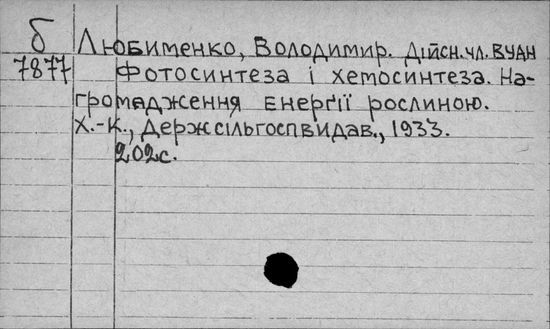 б
7877
Любименко, Володимир. Дійсн.чл. ВУАН
Фотосинтеза і хемосинтеза. На-
громадження енерґії рослиною.
Х.-К., Держсільгоспвидав., 1933.
202с.